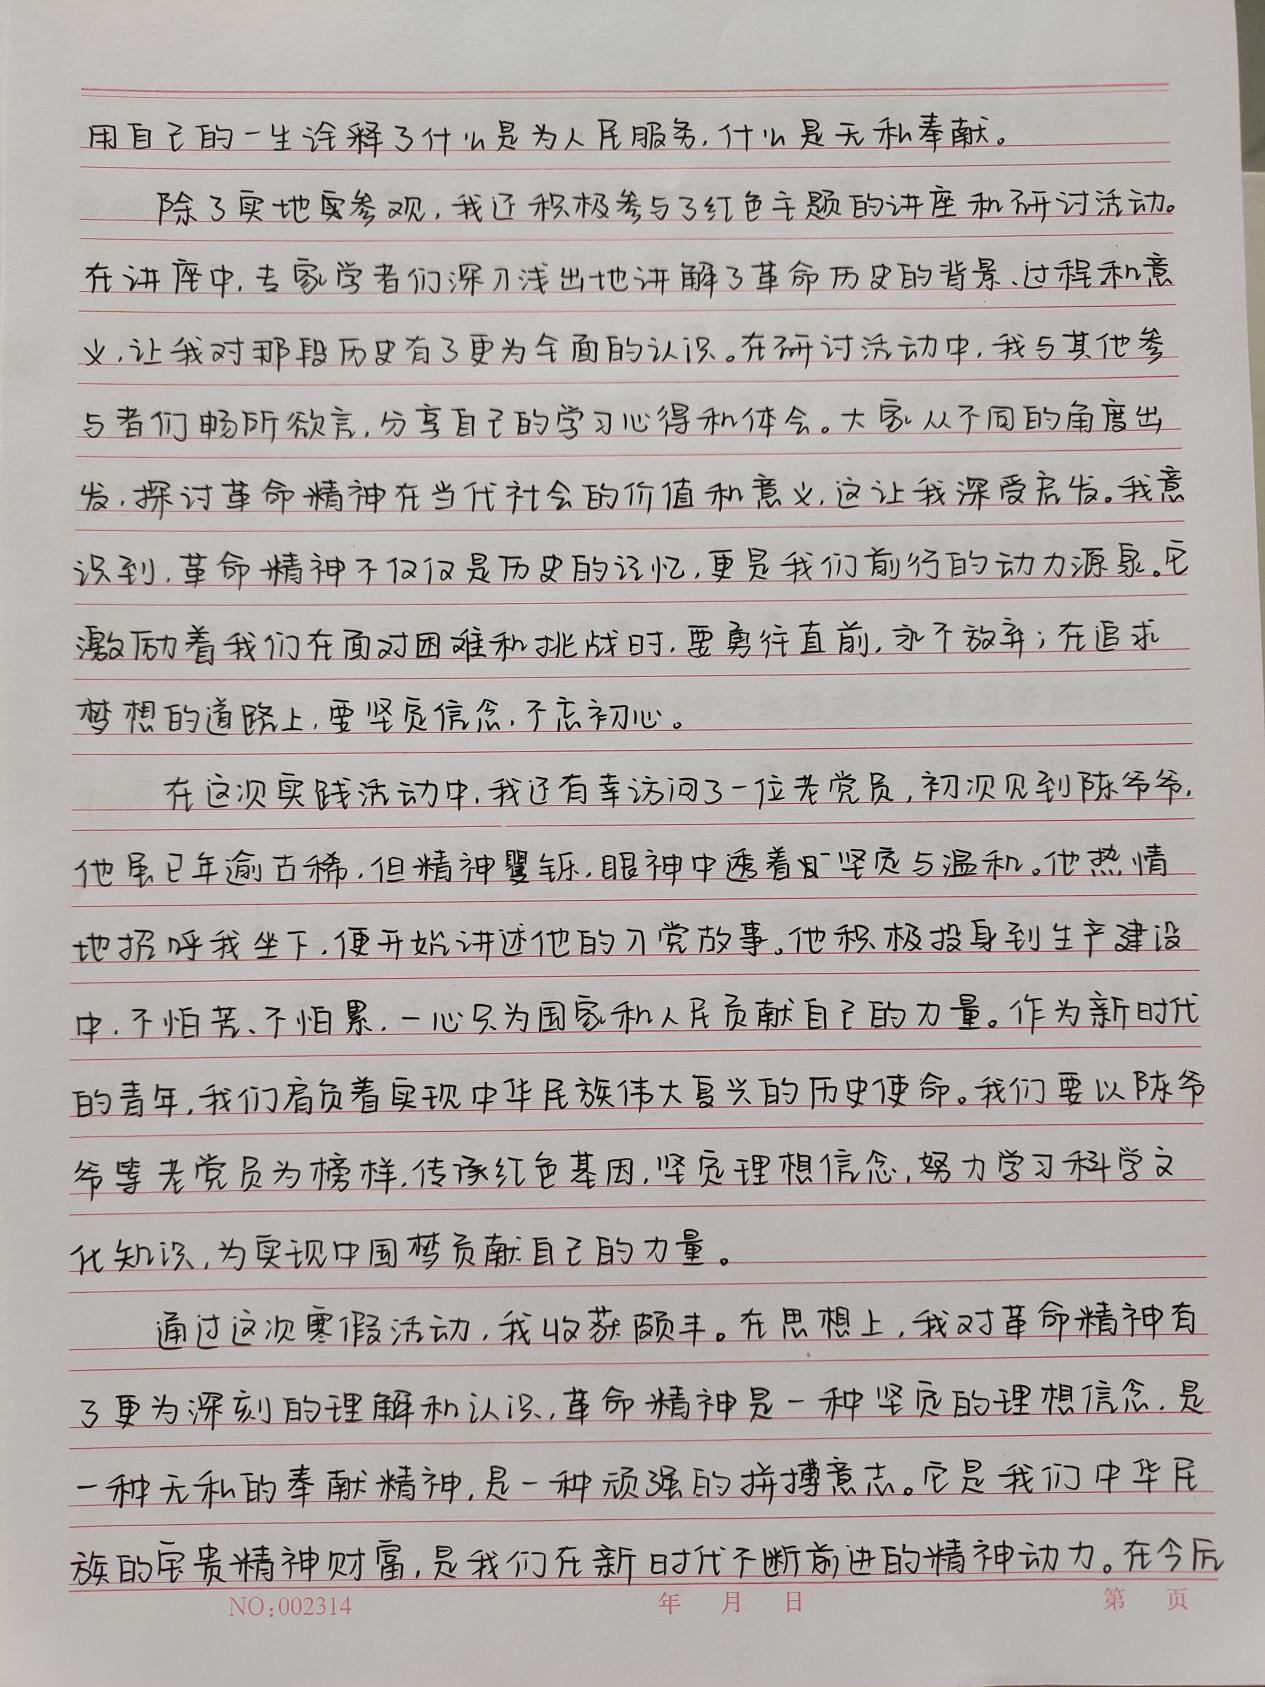 用自己的一生诠释了什么是为人民服务，什么是无私奉献。
除了实地实参观，我还积极参与了红色主题的讲座和研讨活动。
在讲座中，专家学者们深入浅出地讲解了革命历史的背景、过程和意
义，让我对那段历史有了更为全面的认识。在研讨活动中，我与其他参
与者们畅所欲言，分享自己的学习心得和体会。大家从不同的角度出
发，探讨革命精神在当代社会的价值和意义，这让我深受启发。我意
识到，革命精神不仅仅是历史的记忆，更是我们前行的动力源泉。它
激励着我们在面对困难和挑战时，要勇往直前，永不放弃；在追求
梦想的道路上，要坚定信念，不忘初心。
在这次实践活动中，我还有幸访问了一位老党员，初次见到陈爷爷，
他虽已年逾古稀，但精神矍铄，眼神中透着坚定与温和。他热情
地招呼我坐下，便开始讲述他的入党故事。他积极投身到生产建设
中，不怕苦、不怕累，一心只为国家和人民贡献自己的力量。作为新时代
的青年，我们肩负着实现中华民族伟大复兴的历史使命。我们要以陈爷
爷等老党员为榜样，传承红色基因，坚定理想信念，努力学习科学文
化知识，为实现中国梦贡献自己的力量。
通过这次寒假活动，我收获颇丰。在思想上，我对革命精神有
了更为深刻的理解和认识，革命精神是一种坚定的理想信念，是
一种无私的奉献精神，是一种顽强的拼搏意志。它是我们中华民
族的宝贵精神财富，是我们在新时代不断前进的精神动力。在今后
NO:002314 年 月 日 第 页